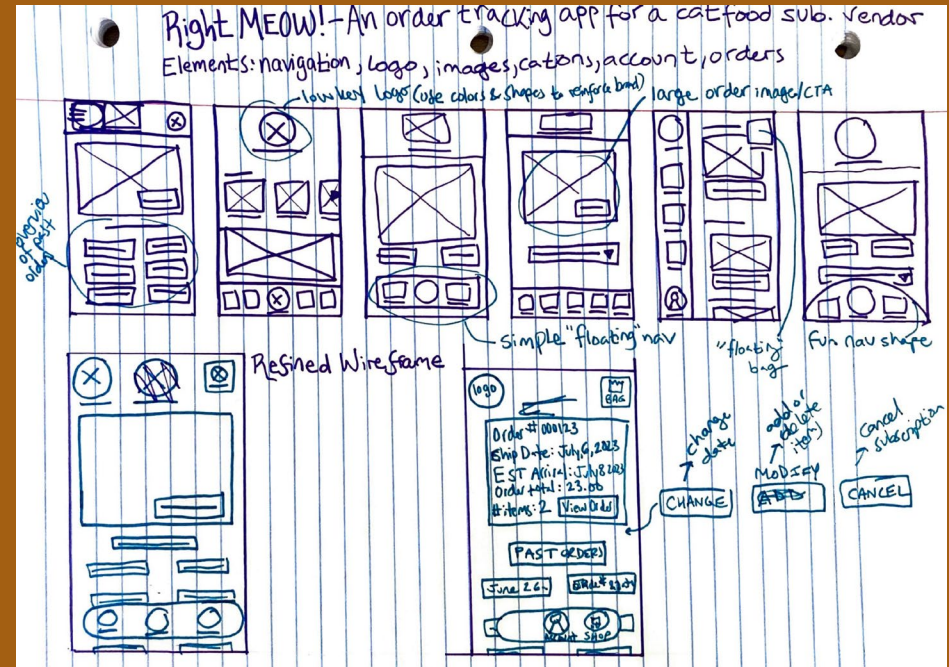 Right MEOW! - An order tracking app for a catfood sub. vendor
Elements: navigation, logo, images, cations, account, orders
lowkey logo (use colors & shapes to reinforce brand)
large order image/CTA
overview
of past
orders
simple "floating" nav
"floating"
bag
fun nav shape
Refined Wireframe
logo
BAG
Order # 000123
Ship Date: July, 6, 2023
EST Arrival: July 8 2023
Order total: 23.00
# items: 2 View Order
PAST ORDERS
June 26
change
date
add or
delete
item)
cancel
subscription
CHANGE
MODIFY
ADD
CANCEL
SHOP